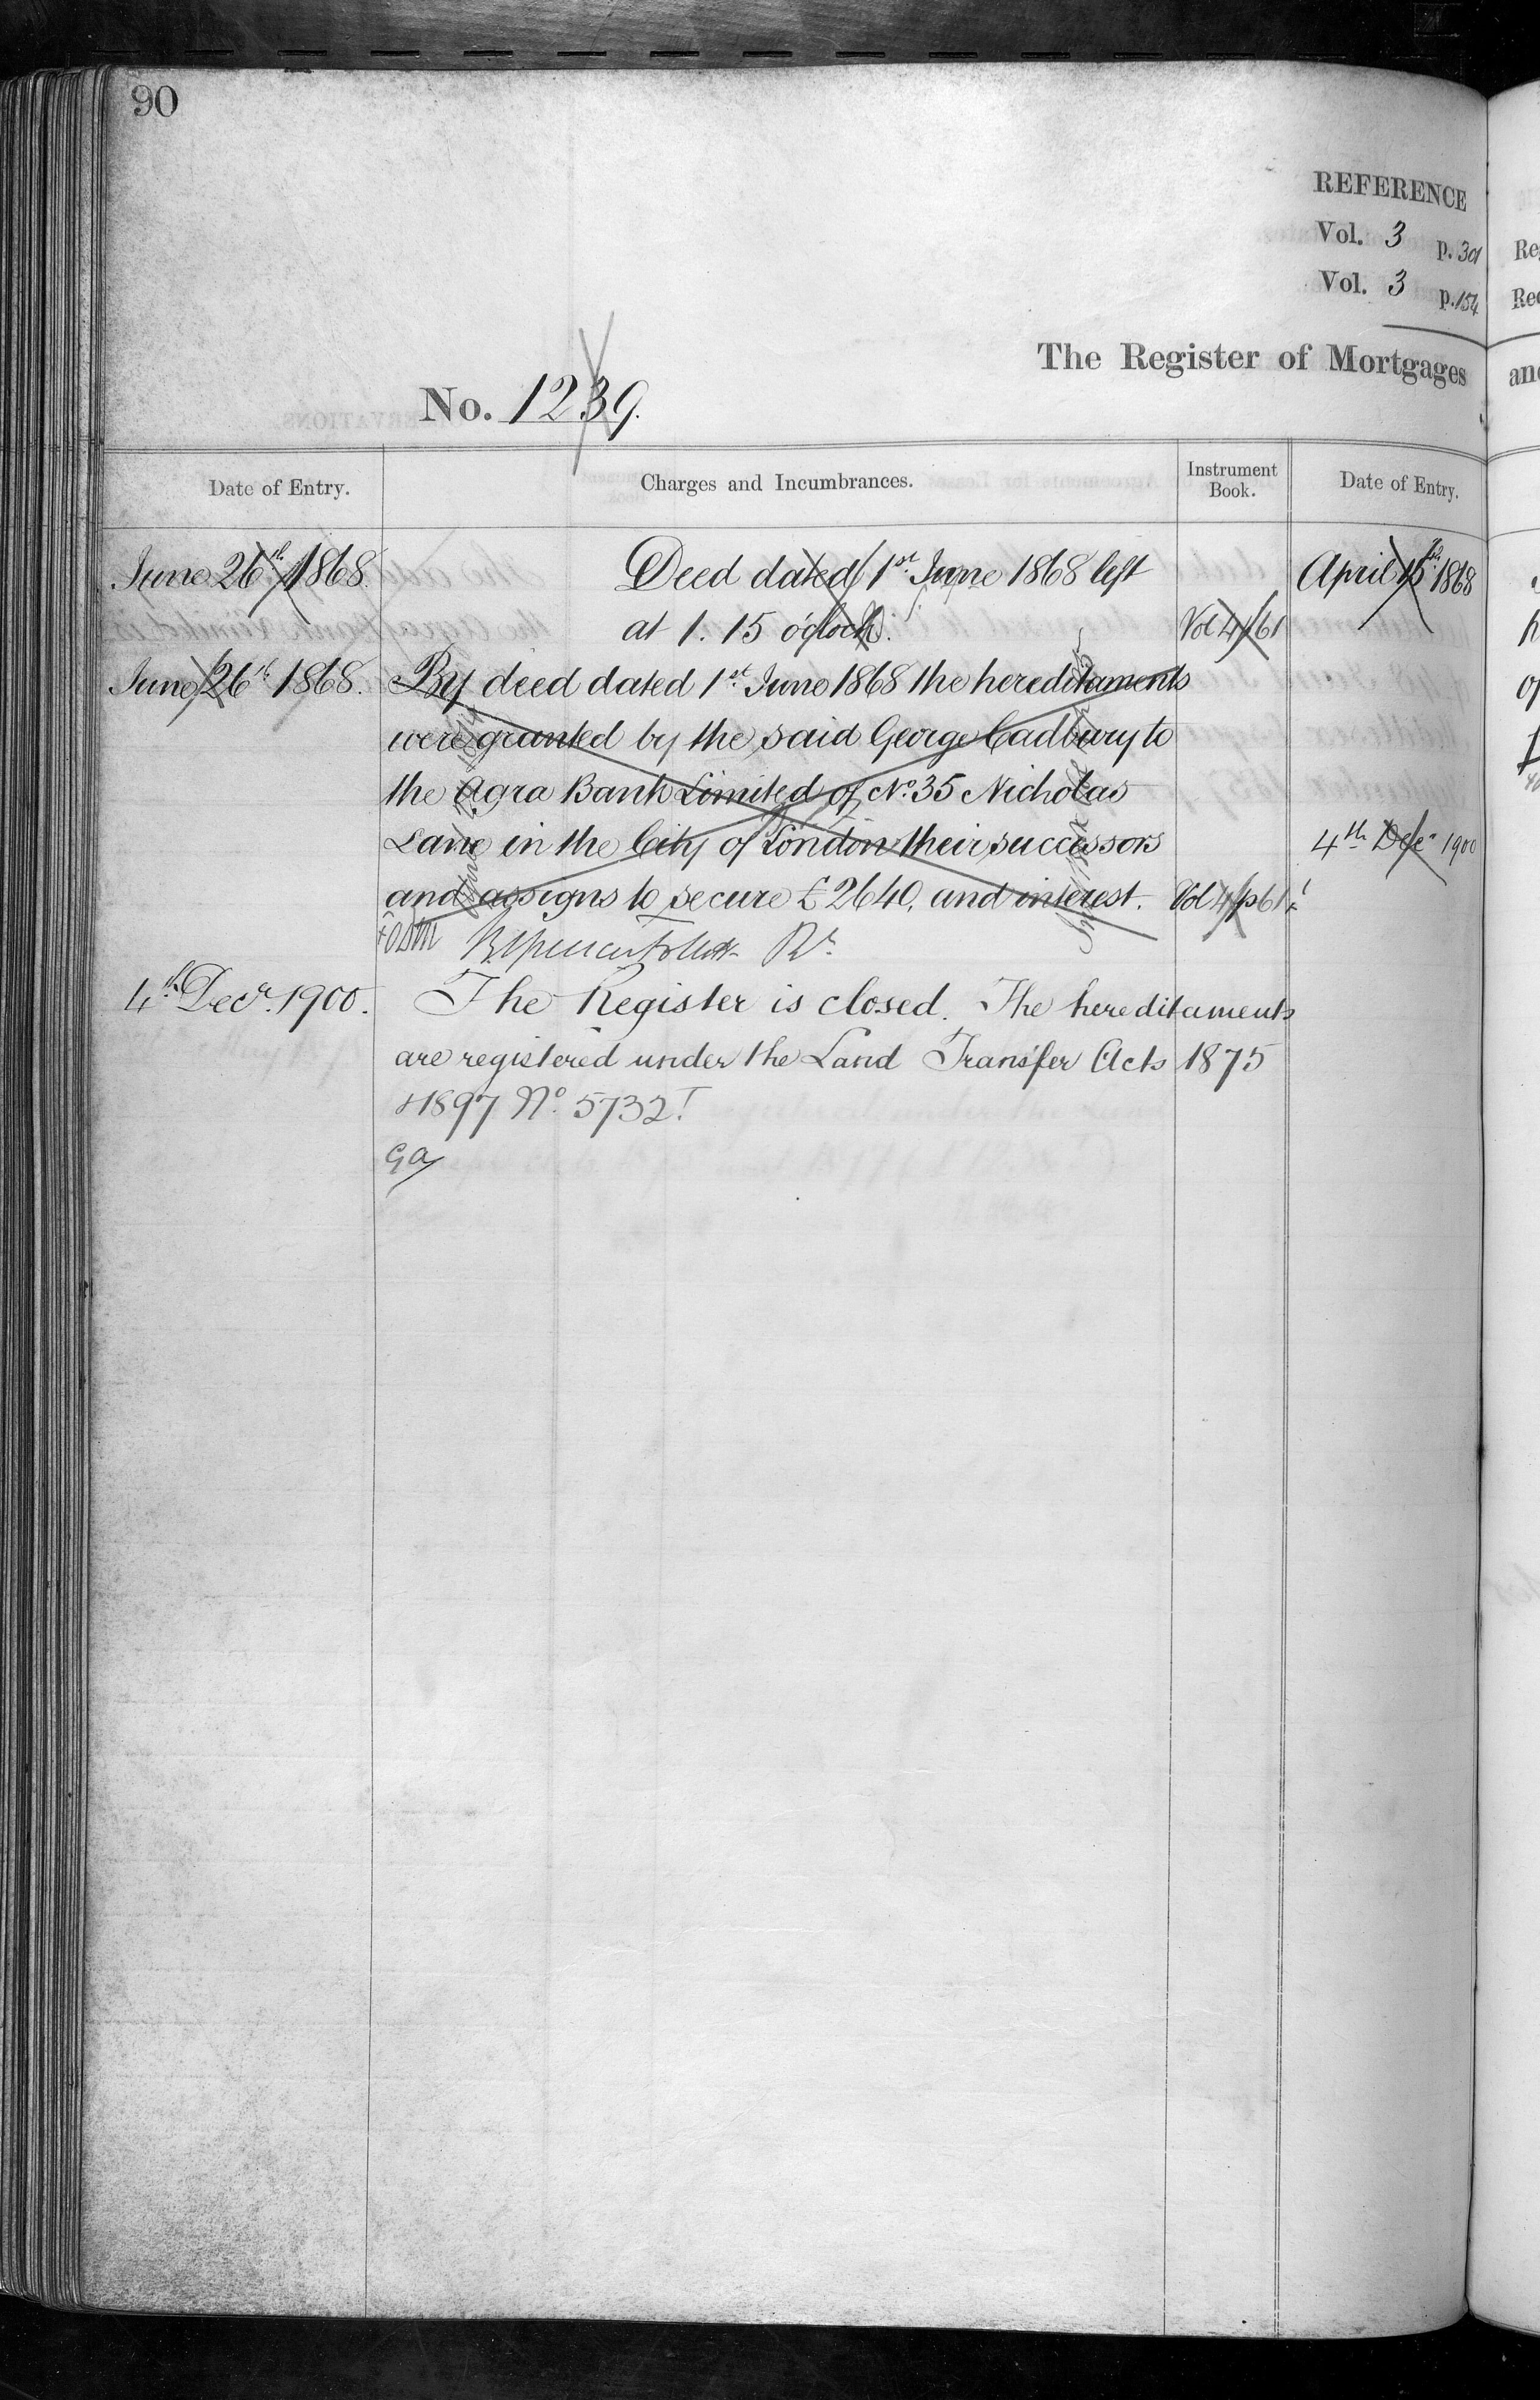 90
REFERENCE
Vol. 3 p. 301
Vol. 3 p. 154
The Register of Mortgages
No. 1239.
Date of Entry. Charges and Incumbrances. Instrument Book. Date of Entry.
June 26th 1868. Deed dated 1st June 1868 left April 15th 1868
at 1. 15 o'clock. Vol 4 p 61
June 26th 1868. By deed dated 1st June 1868 the hereditaments
were granted by the said George Cadbury to
the Agra Bank Limited of No. 35 Nicholas
Lane in the City of London their successors 4th Decr 1900
and assigns to secure £2640, and interest. Vol 4 p 61
4th Decr. 1900. The Register is closed. The hereditaments
are registered under the Land Transfer Acts 1875
& 1897 No. 5732